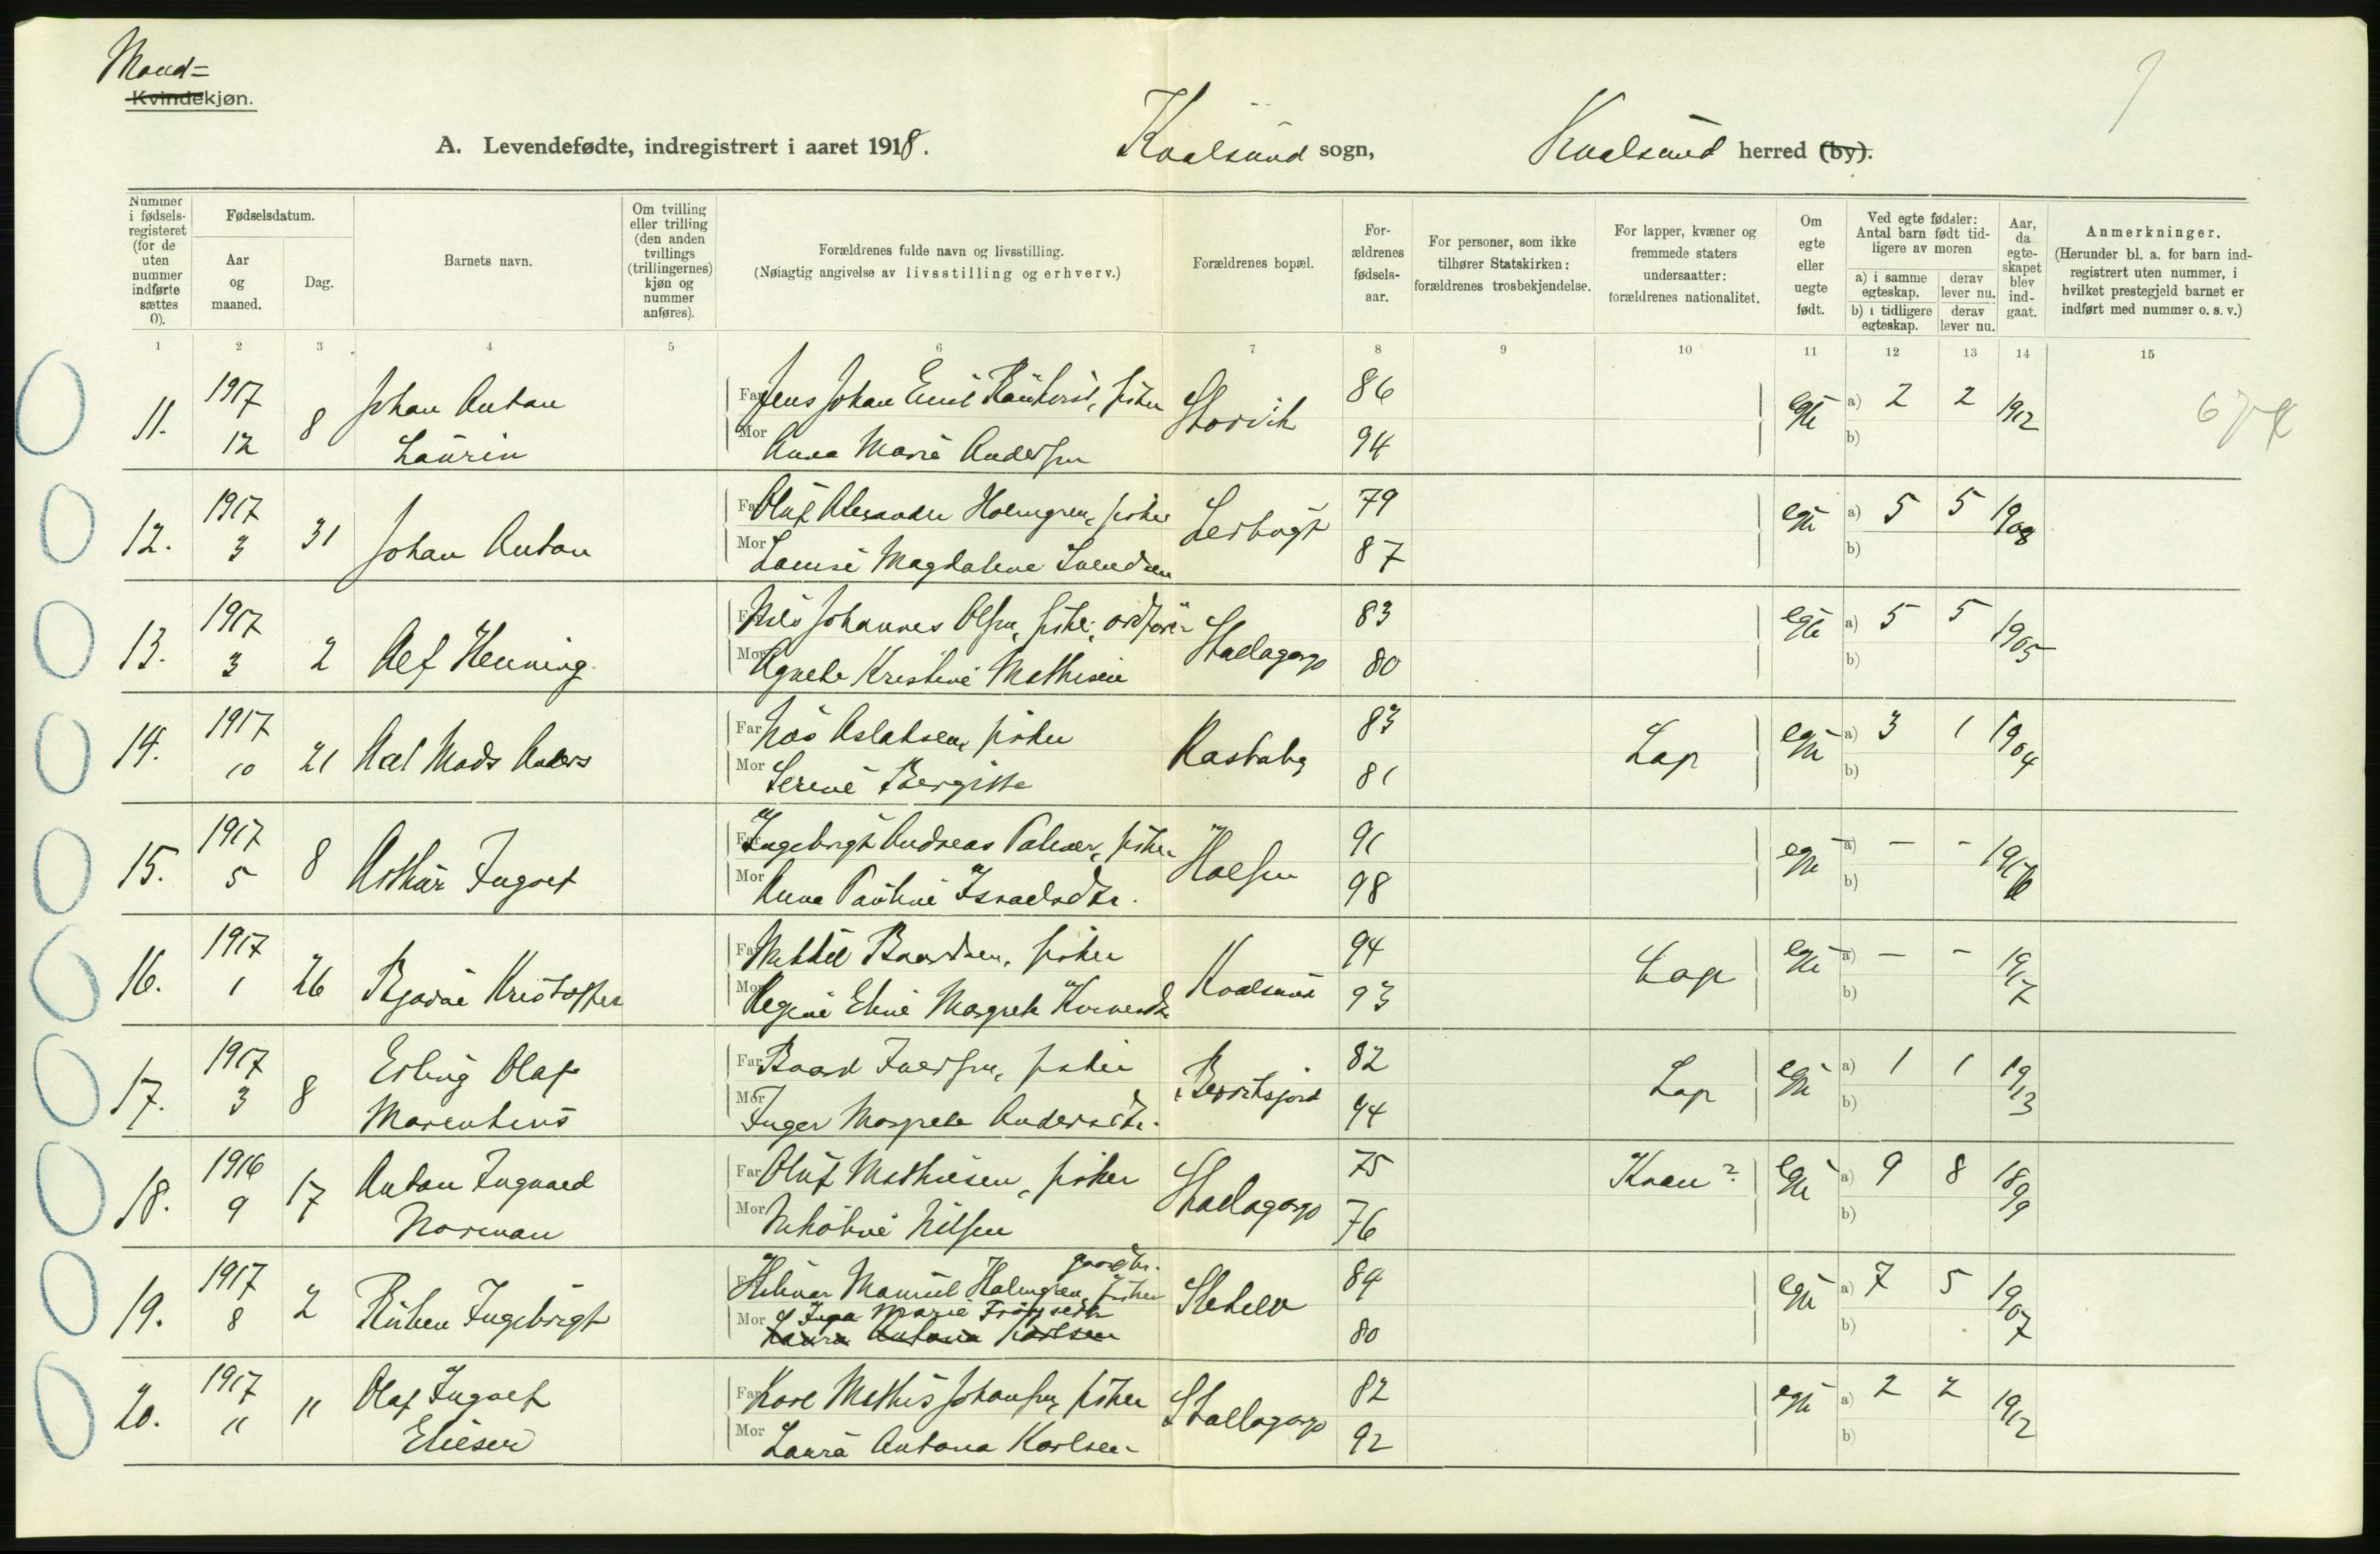 Mand=
Kvindekjøn.
A. Levendefødte, indregistrert i aaret 1918. Kvalsund sogn, Kvalsund herred (by).
Nummer i fødsels-registeret (for de uten nummer indførte sættes 0).
Fødselsdatum.
Aar og maaned.
Dag.
Barnets navn.
Om tvilling eller trilling (den anden tvillings (trillingernes) kjøn og nummer anføres).
Forældrenes fulde navn og livsstilling.
(Nøiagtig angivelse av livsstilling og erhverv.)
Forældrenes bopæl.
For-ældrenes fødsels-aar.
For personer, som ikke tilhører Statskirken: forældrenes trosbekjendelse.
For lapper, kvæner og fremmede staters undersaatter: forældrenes nationalitet.
Om egte eller uegte født.
Ved egte fødsler: Antal barn født tid-ligere av moren
a) i samme egteskap.
derav lever nu.
b) i tidligere egteskap.
derav lever nu.
Aar, da egte-skapet blev ind-gaat.
Anmerkninger.
(Herunder bl. a. for barn ind-registrert uten nummer, i hvilket prestegjeld barnet er indført med nummer o. s. v.)
1 2 3 4 5 6 7 8 9 10 11 12 13 14 15
11. 1917 12 8 Johan Anton Laurin
Far Jens Johan Emil, fisker 86
Mor Anna Marie Andersen 94
Storvik egte a) 2 2 1912
b)
12. 1917 3 31 Johan Anton
Far Oluf Alexander Holmgren, fisker 79
Mor Louise Magdalene Svendsen 87
Lerbugt egte a) 5 5 1908
b)
13. 1917 3 2 Alf Henning
Far Nils Johannes Olsen, fisker, ordfører 83
Mor Agnete Kristine Mathisen 80
Skallagargo egte a) 5 5 1905
b)
14. 1917 10 21 Axel Mads Anders
Far Nils Aslaksen, fisker 83
Mor Serine Bergitte 81
Lap egte a) 3 1 1904
b)
15. 1917 5 8 Arthur Ingolf
Far Ingebrigt Andreas, fisker 91
Mor Anna Pauline Israelsdtr. 98
egte a) - - 1916
b)
16. 1917 1 26 Bjarne Kristoffer
Far Mikkel Baardsen, fisker 94
Mor Regine Eline Margrete 93
Kvalsund Lap egte a) - - 1917
b)
17. 1917 3 8 Erling Olaf Marentius
Far Baard Iversen, fisker 82
Mor Inger Margrete Andersdtr. 94
Beritsfjord Lap egte a) 1 1 1913
b)
18. 1916 9 17 Anton Ingvald Norman
Far Oluf Mathisen, fisker 75
Mor Nikoline Nilsen 76
Skallagargo Kvæn? egte a) 9 8 1899
b)
19. 1917 8 2 Ruben Ingebrigt
gaardbr.
Far Hilmar Manuel Holmgren, fisker 84
Inga Marie
Mor Laura Antona Karlsen 80
egte a) 7 5 1907
b)
20. 1917 11 11 Olaf Ingolf Elieser
Far Karl Mathis Johansen, fisker 82
Mor Laura Antona Karlsen 92
Skallagargo egte a) 2 2 1912
b)